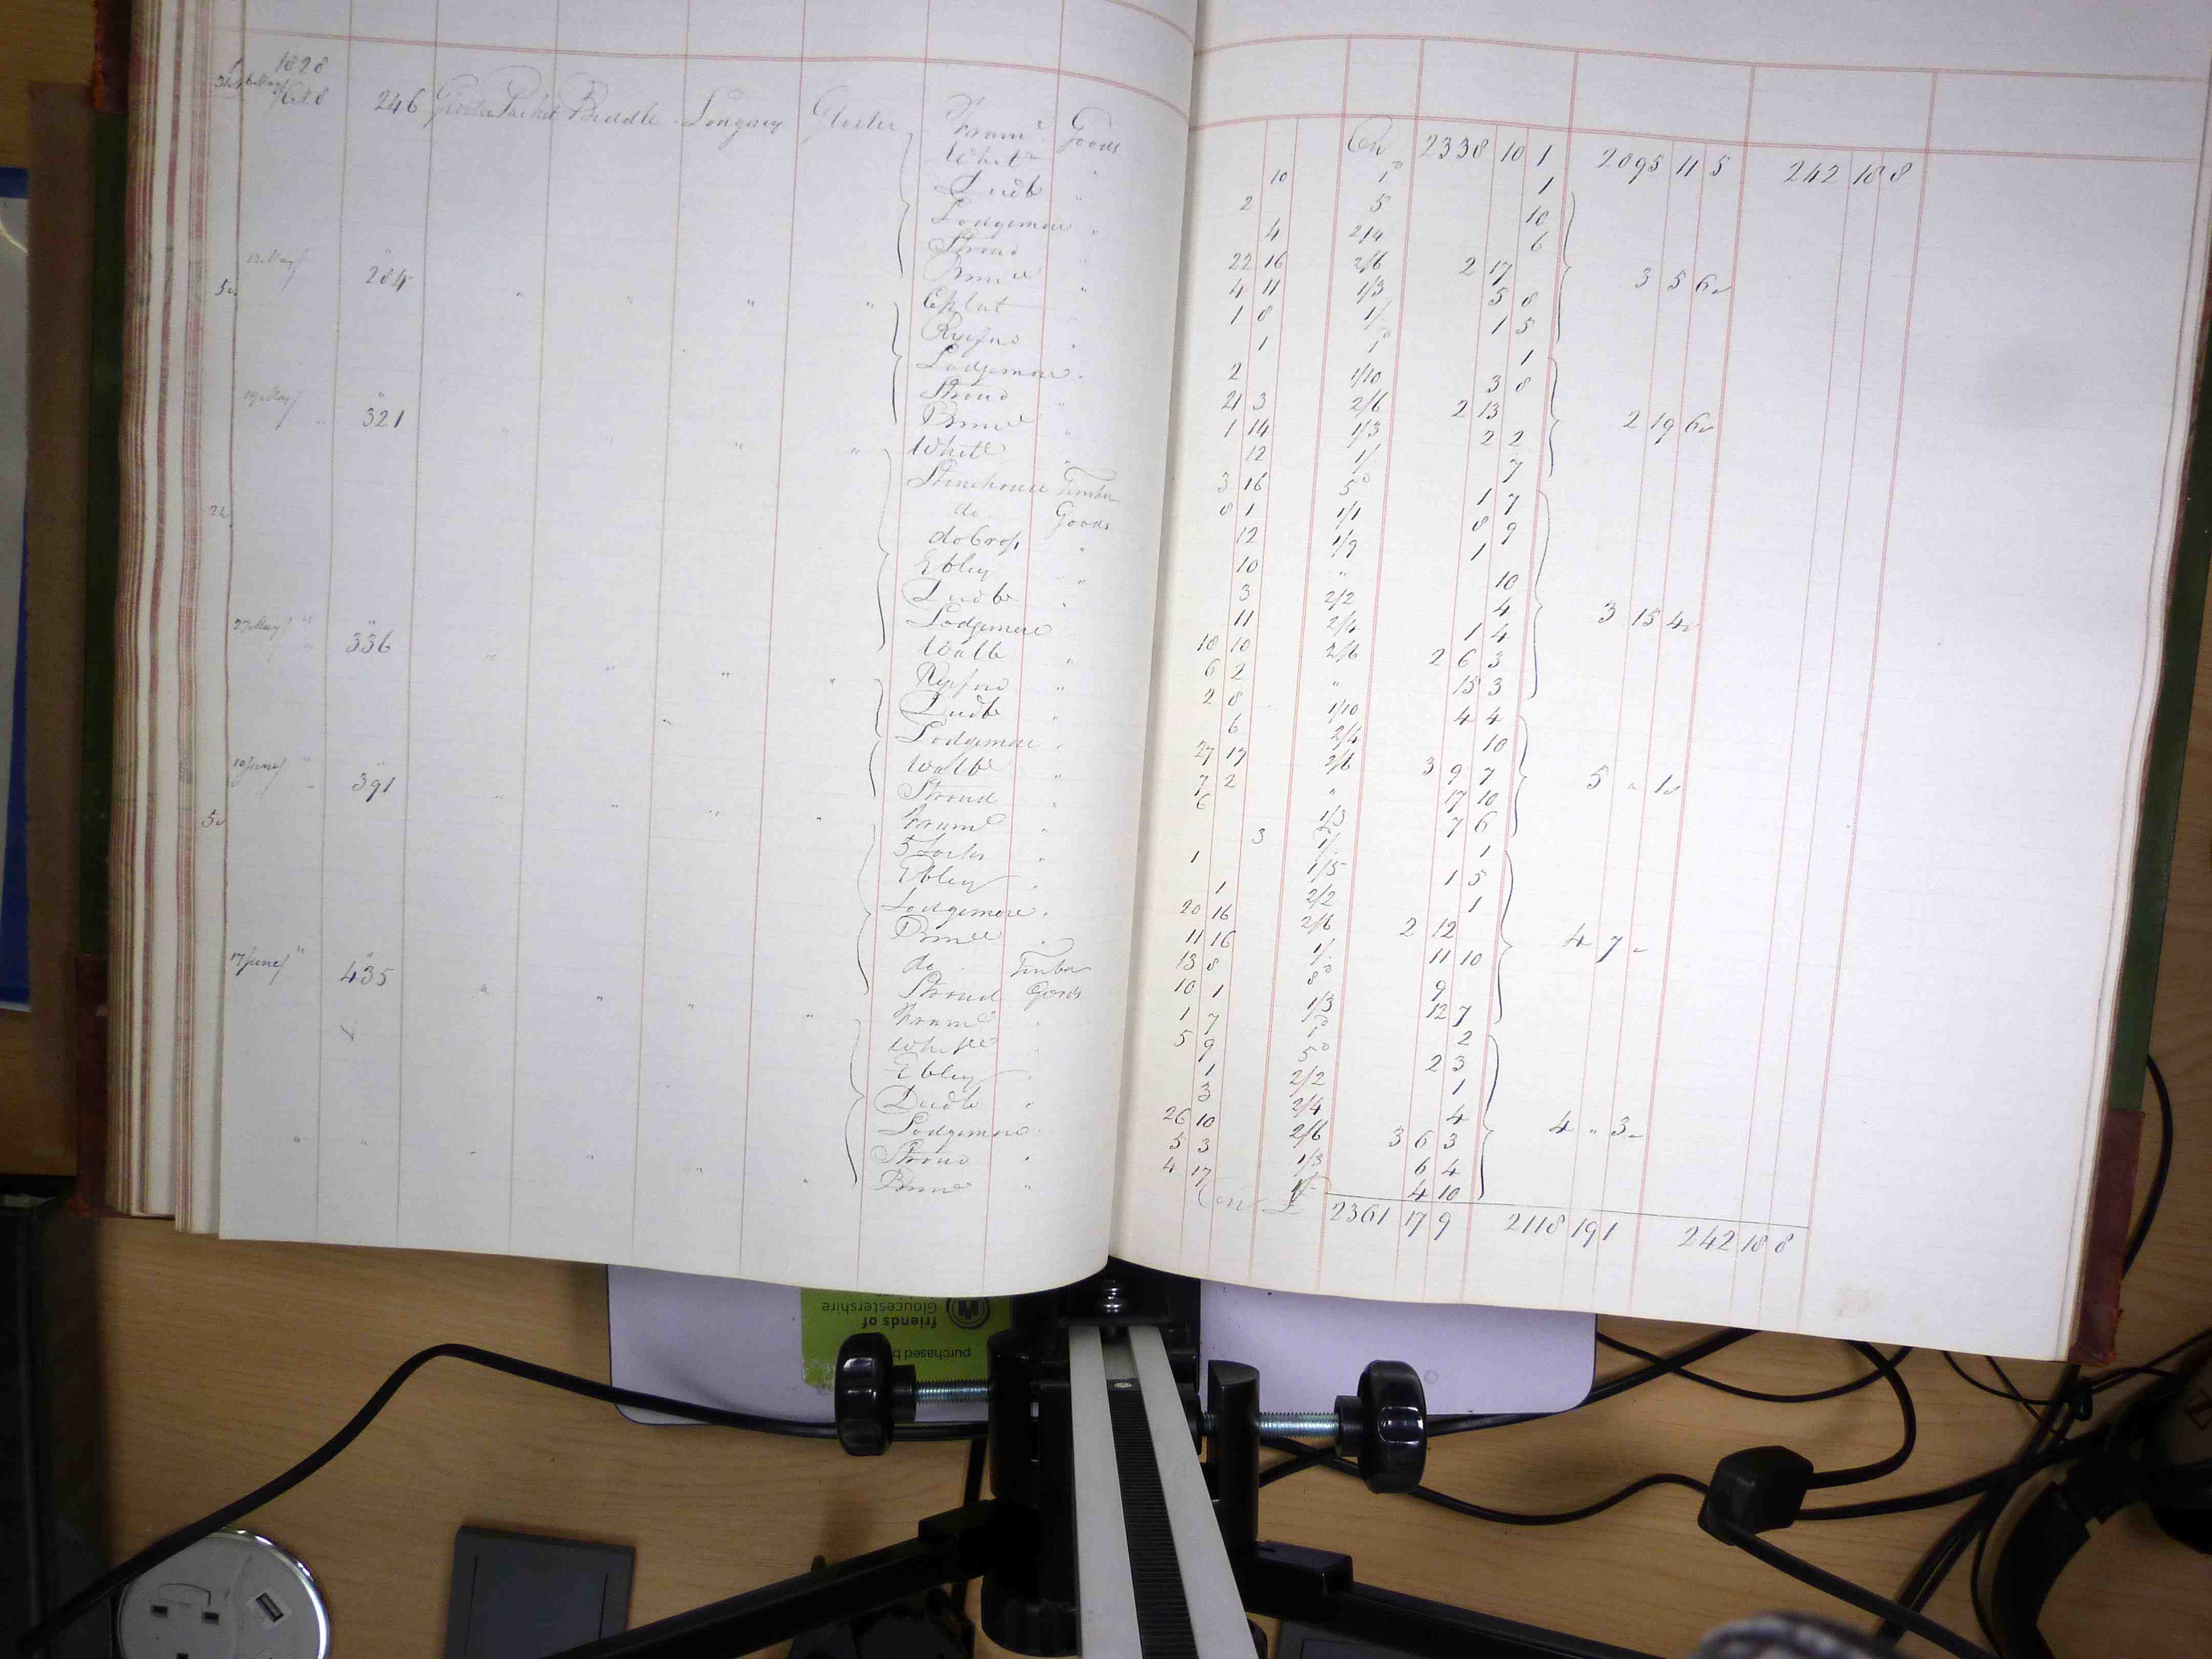 1828
246 Gloster Packet Biddle Longney Gloster Frame Goods
White "
Dudb "
Lodgemore "
Stroud "
13 May 284 " " " " Brimsc "
5
Ryefd "
Lodgemore "
Stroud "
19 May " 321 " " " " Brimsc "
White "
Stonehouse Timber
do Goods
Ebley "
Dudb "
Lodgemore "
27 May " 336 " " " " Wallb "
Ryefd "
Dudb "
Lodgemore "
Wallb "
10 June " 391 " " " " Stroud "
Frame "
5 Locks "
Ebley "
Lodgemore "
Brimsc "
17 June " 435 " " " " do Timber
Stroud Goods
Frame "
White "
Ebley "
Dudb "
Lodgemore "
Stroud "
" " " " " " Brimsc "
2338 10 1 2095 11 5 242 18 8
10 1d 1
2 5 10
4 2/4 6
22 16 2/6 2 17
4 11 1/3 5 8 3 5 6
1 8 1/- 1 5
1 1d 1
2 1/10 3 8
21 3 2/6 2 13
1 14 1/3 2 2 2 19 6
12 1/ 7
3 16 5d 1 7
8 1 1/1 8 9
12 1/9 1
10 " 10
3 2/2 4
11 2/4 1 4 3 15 4
18 10 2/6 2 6 3
6 2 " 15 3
2 8 1/10 4 4
6 2/4 10
27 17 2/6 3 9 7
7 2 " 17 10 5 " 1
6 1/3 7 6
3 1/ 1
1 1/5 1 5
1 2/2 1
20 16 2/6 2 12
11 16 1/ 11 10 4 7 -
13 8 8d 9
10 1 1/3 12 7
1 7 1d 2
5 9 5d 2 3
1 2/2 1
3 2/4 4
26 10 2/6 3 6 3 4 " 3
5 3 1/3 6 4
4 17 1/ 4 10
2361 17 9 2118 19 1 242 18 8
purchased b
friends of
Gloucestershire